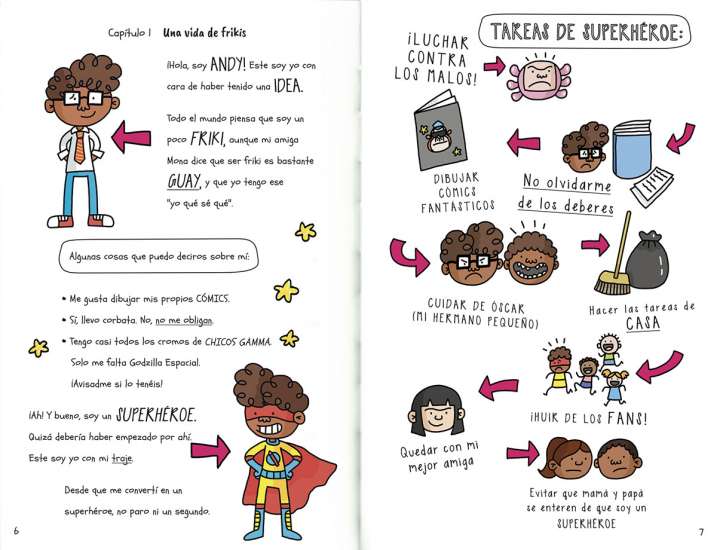 Capítulo 1 Una vida de frikis
¡Hola, soy ANDY! Este soy yo con
cara de haber tenido una IDEA.
Todo el mundo piensa que soy un
poco FRIKI, aunque mi amiga
Mona dice que ser friki es bastante
GUAY, y que yo tengo ese
"yo qué sé qué".
Algunas cosas que puedo deciros sobre mí:
• Me gusta dibujar mis propios CÓMICS.
• Sí, llevo corbata. No, no me obligan.
• Tengo casi todos los cromos de CHICOS GAMMA.
Solo me falta Godzilla Espacial.
¡Avisadme si lo tenéis!
¡Ah! Y bueno, soy un SUPERHÉROE.
Quizá debería haber empezado por ahí.
Este soy yo con mi traje.
Desde que me convertí en un
superhéroe, no paro ni un segundo.
6
TAREAS DE SUPERHÉROE:
¡LUCHAR
CONTRA
LOS MALOS!
DIBUJAR
CÓMICS
FANTÁSTICOS
No olvidarme
de los deberes
CUIDAR DE ÓSCAR
(MI HERMANO PEQUEÑO)
Hacer las tareas de
CASA
¡HUIR DE LOS FANS!
Quedar con mi
mejor amiga
Evitar que mamá y papá
se enteren de que soy un
SUPERHÉROE
7